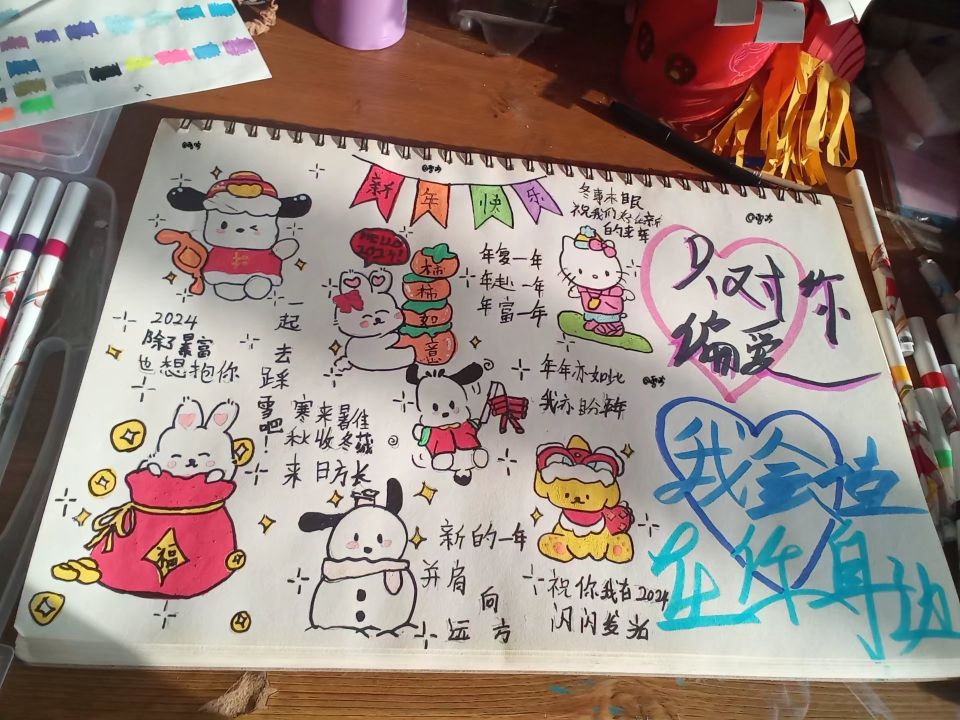 新年快乐
HELLO
2024!
柿
柿
如
意
年复一年
年赴一年
年富一年
祝我们在崭新
的来年
只对你
偏爱
2024
除了暴富
也想抱你
一起去踩雪吧!
寒来暑往
秋收冬藏
来日方长
年年亦如此
我亦盼年年
福
新的一年
并肩
向
远方
祝你我在2024
闪闪发光
我会站
在你身边